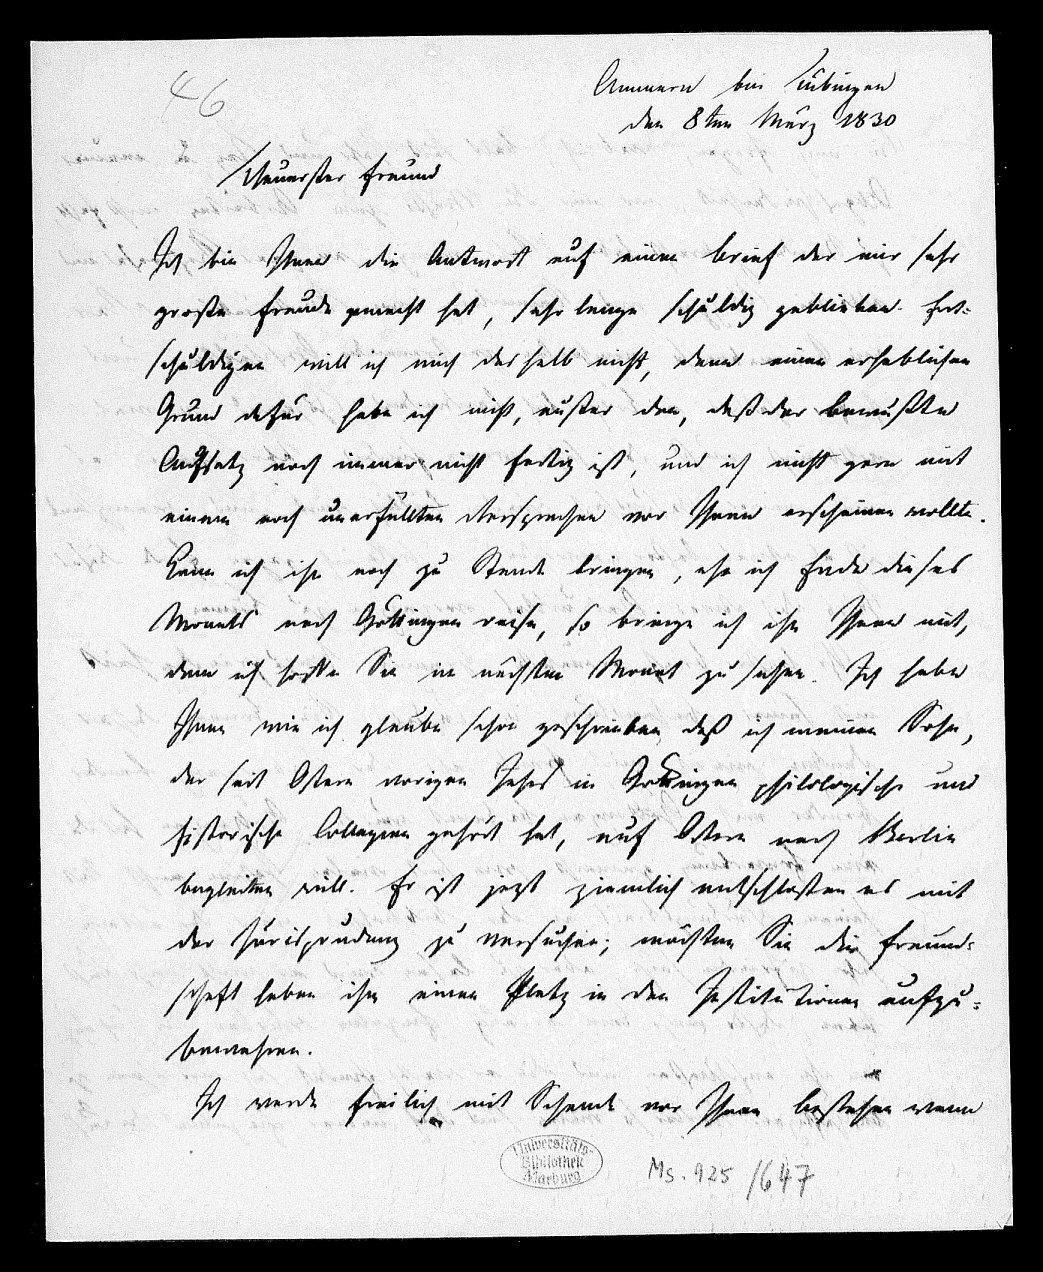 46
Ammern bei Tübingen
den 8ten März 1830
Theuerster Freund
Ich bin Ihnen die Antwort auf einen Brief der mir sehr
große Freude gemacht hat, sehr lange schuldig geblieben. Ent-
schuldigen will ich mich deshalb nicht, denn einen erheblichen
Grund dafür habe ich nicht, außer den, daß der bewußte
Aufsatz noch immer nicht fertig ist, und ich nicht gern mit
einem noch unerfüllten Versprechen vor Ihnen erscheinen wollte.
Kann ich ihn noch zu Stande bringen, ehe ich Ende dieses
Monats nach Göttingen reise, so bringe ich ihn Ihnen mit,
denn ich hoffe Sie im nächsten Monat zu sehen. Ich habe
Ihnen wie ich glaube schon geschrieben daß ich meinen Sohn,
der seit Ostern vorigen Jahrs in Göttingen philologische und
historische Collegien gehört hat, auf Ostern nach Berlin
begleiten will. Er ist jezt ziemlich entschlossen es mit
der Jurisprudenz zu versuchen; möchten Sie die Freund-
schaft haben ihm einen Platz in den Institutionen aufzu-
bewahren.
Ich werde freilich mit Schande vor Ihnen bestehen wenn
Universitäts-
Bibliothek
Marburg
Ms. 925/647